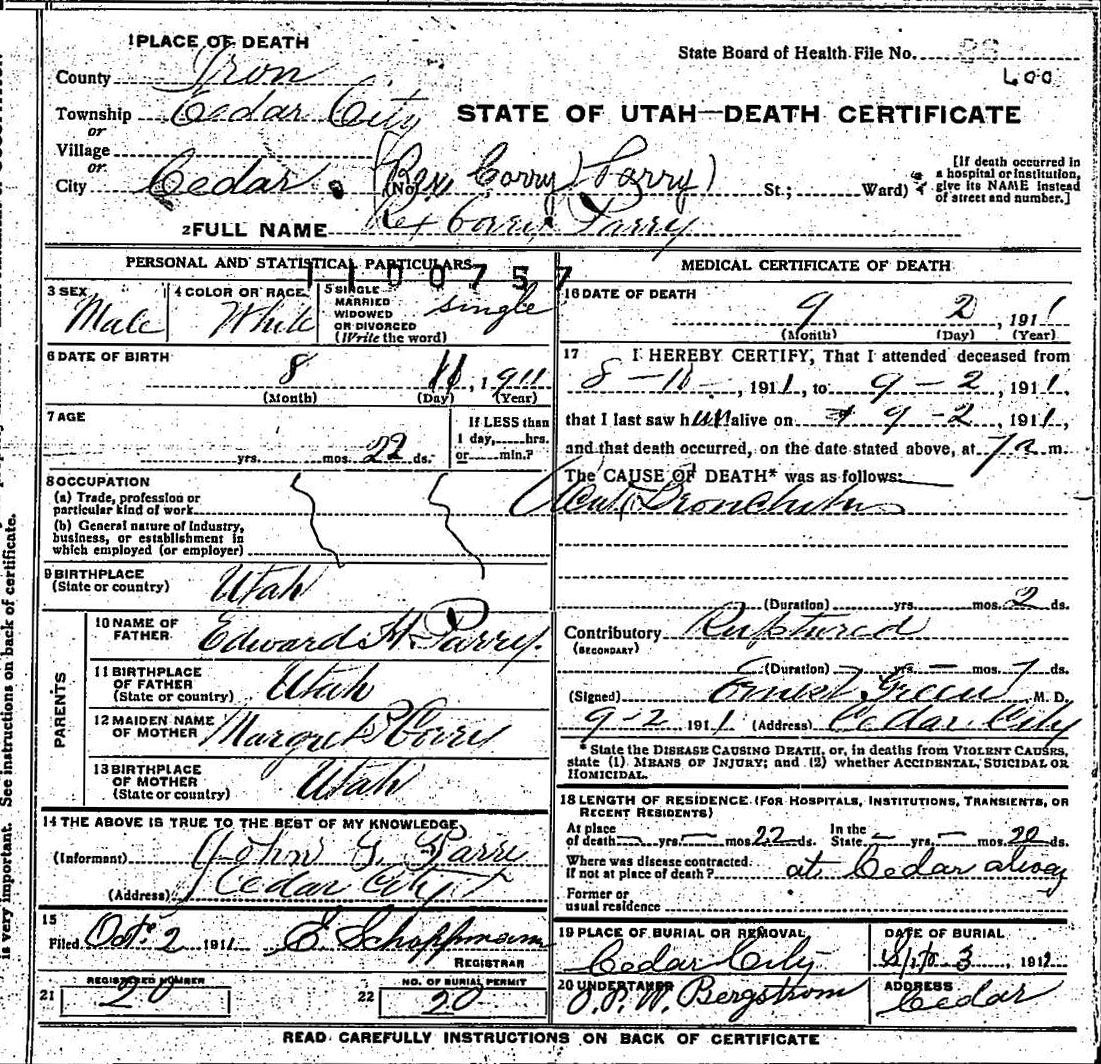 1 PLACE OF DEATH
State Board of Health File No.
County Iron
L00
Township Cedar City
STATE OF UTAH—DEATH CERTIFICATE
or
Village
or
City Cedar (No. Rex Corry Parry) St.; Ward)
[If death occurred in
a hospital or institution,
give its NAME instead
of street and number.]
2 FULL NAME Rex Corry Parry
PERSONAL AND STATISTICAL PARTICULARS
1100757
3 SEX Male
4 COLOR OR RACE White
5 SINGLE
MARRIED
WIDOWED
OR DIVORCED
(Write the word)
single
6 DATE OF BIRTH
8 11, 1911
(Month) (Day) (Year)
7 AGE
yrs. mos. 22 ds.
If LESS than
1 day, hrs.
or min.?
8 OCCUPATION
(a) Trade, profession or
particular kind of work
(b) General nature of industry,
business, or establishment in
which employed (or employer)
9 BIRTHPLACE
(State or country) Utah
PARENTS
10 NAME OF
FATHER Edward H. Parry.
11 BIRTHPLACE
OF FATHER
(State or country) Utah
12 MAIDEN NAME
OF MOTHER Margret Corry
13 BIRTHPLACE
OF MOTHER
(State or country) Utah
14 THE ABOVE IS TRUE TO THE BEST OF MY KNOWLEDGE
(Informant) John G. Parry
(Address) Cedar City
15
Filed Oct. 2 1911 E Schoppmann
REGISTRAR
REGISTERED NUMBER
21 20
NO. OF BURIAL PERMIT
22 20
MEDICAL CERTIFICATE OF DEATH
16 DATE OF DEATH
9 2, 1911
(Month) (Day) (Year)
17 I HEREBY CERTIFY, That I attended deceased from
8-11-, 1911, to 9-2, 1911,
that I last saw him alive on 9-2, 1911,
and that death occurred, on the date stated above, at 7 a m.
The CAUSE OF DEATH* was as follows:
Acute Bronchitis
(Duration) yrs. mos. 2 ds.
Contributory Ruptured
(SECONDARY)
(Duration) yrs. mos. ds.
(Signed) Ernest Green, M. D.
9-2, 1911 (Address) Cedar City
* State the DISEASE CAUSING DEATH, or, in deaths from VIOLENT CAUSES,
state (1) MEANS OF INJURY; and (2) whether ACCIDENTAL, SUICIDAL OR
HOMICIDAL.
18 LENGTH OF RESIDENCE (FOR HOSPITALS, INSTITUTIONS, TRANSIENTS, OR
RECENT RESIDENTS)
At place
of death yrs. mos. 22 ds.
In the
State yrs. mos. 22 ds.
Where was disease contracted.
If not at place of death? at Cedar
Former or
usual residence
19 PLACE OF BURIAL OR REMOVAL
Cedar City
DATE OF BURIAL
Sept. 3, 1911
20 UNDERTAKER
Bergstrom
ADDRESS
Cedar
READ CAREFULLY INSTRUCTIONS ON BACK OF CERTIFICATE
is very important. See instructions on back of certificate.